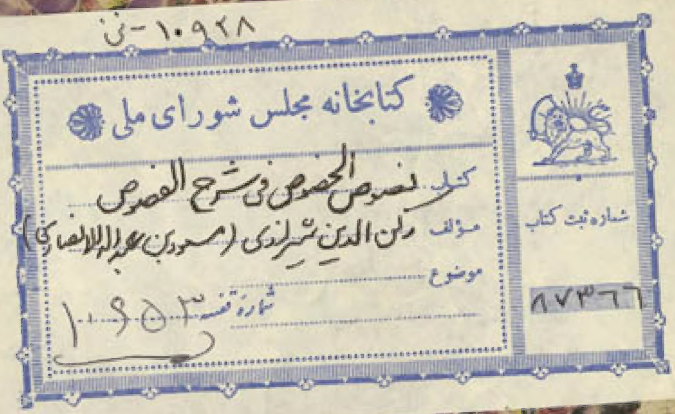 ۱۰۹۲۸ - ن
کتابخانه مجلس شورای ملی
کتاب نصوص الخصوص فی شرح الفصوص
مؤلف رکن الدین شیرازی (مسعود بن عبدالله الانصاری)
موضوع
شماره قفسه ۱۰۹۵۳
شماره ثبت کتاب
۸۷۳۶۶